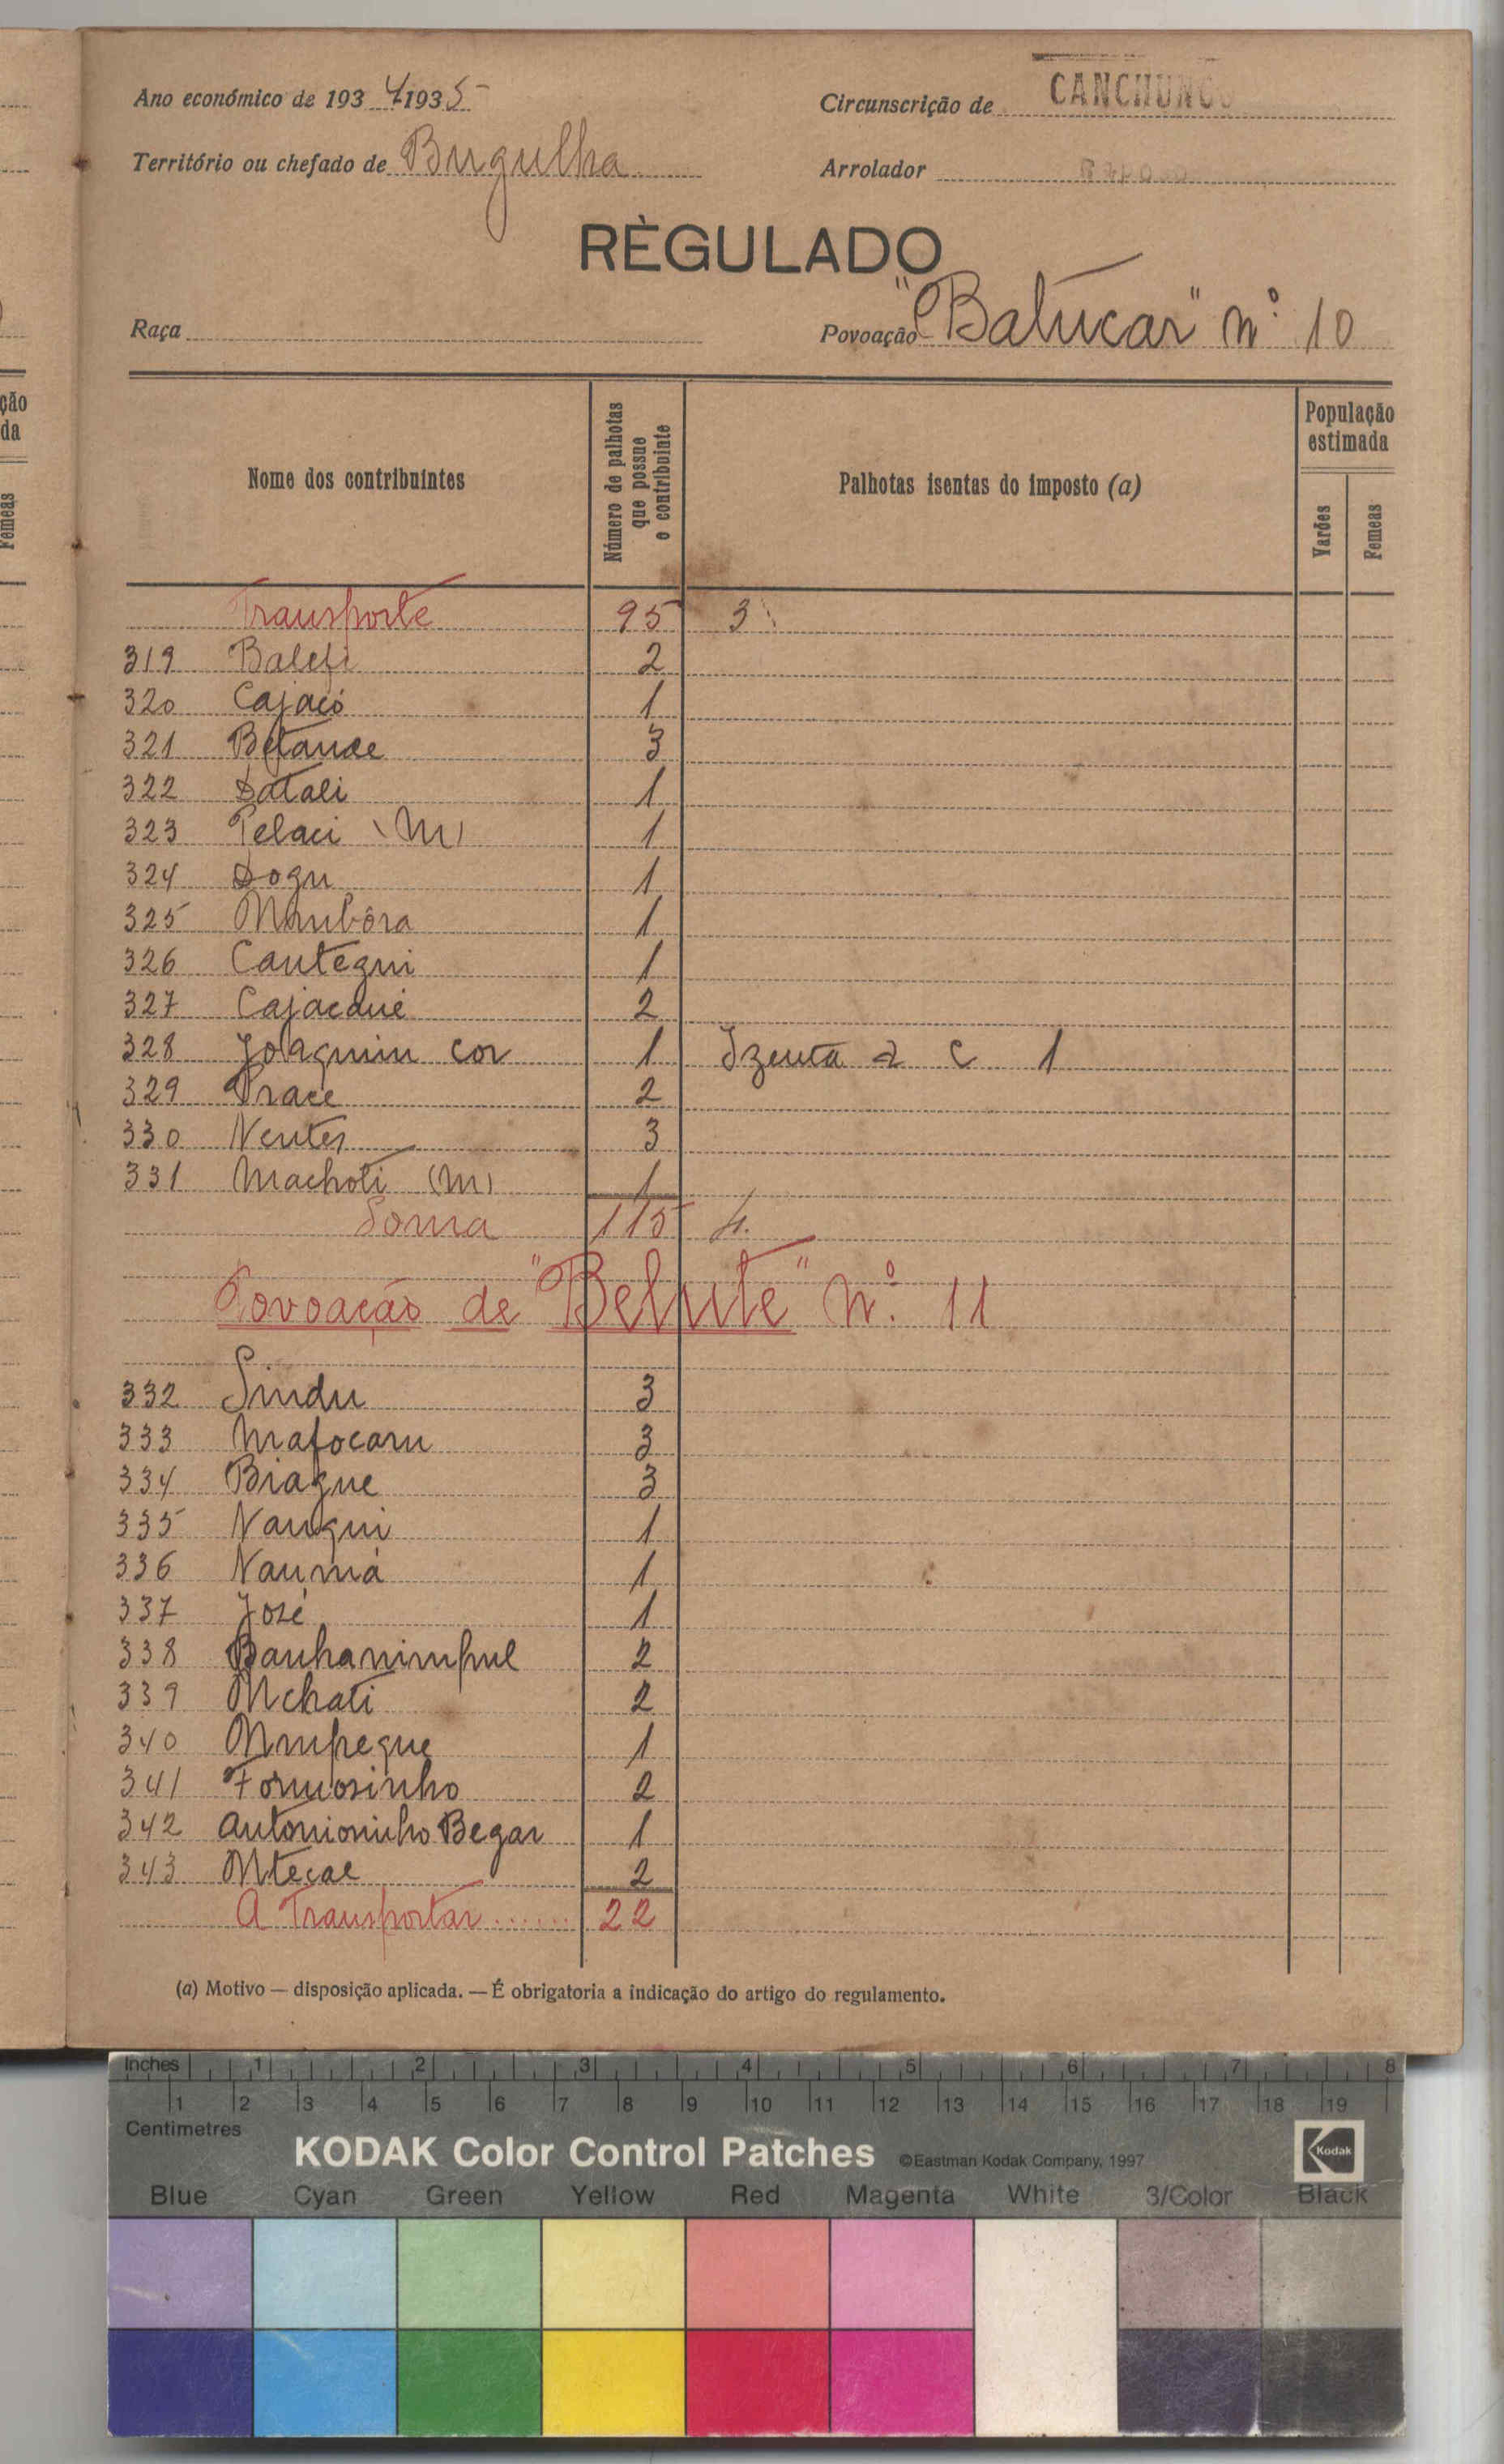 Ano económico de 1934-1935
Circunscrição de CANCHUNGO
Território ou chefado de Bugulha
Arrolador
RÈGULADO
Raça
Povoação "Batucar" nº 10
Nome dos contribuintes
Número de palhotas que possue o contribuinte
Palhotas isentas do imposto (a)
População estimada
Varões
Femeas
Transporte 95 3
319 Baleti 2
320 Cajacó 1
321 Betande 3
322 Datali 1
323 Pelaci (M) 1
324 Dogu 1
325 Mumbôra 1
326 Cantegui 1
327 Cajacaué 2
328 Joaquim Cor 1 Izenta a C 1
329 Prace 2
330 Nentes 3
331 Machoti (M) 1
Soma 115 4
Povoação de "Belute" Nº 11
332 Sindu 3
333 Mafocaru 3
334 Biague 3
335 Nangui 1
336 Naumá 1
337 José 1
338 Banhanimpul 2
339 Mchati 2
340 Mmpegue 1
341 Formosinho 2
342 Antonioninho Begar 1
343 Mtecae 2
A Transportar...... 22
(a) Motivo — disposição aplicada. — É obrigatoria a indicação do artigo do regulamento.
ção
da
Femeas
Inches 1 2 3 4 5 6 7 8
1 2 3 4 5 6 7 8 9 10 11 12 13 14 15 16 17 18 19
Centimetres
KODAK Color Control Patches ©Eastman Kodak Company, 1997 Kodak
Blue Cyan Green Yellow Red Magenta White 3/Color Black